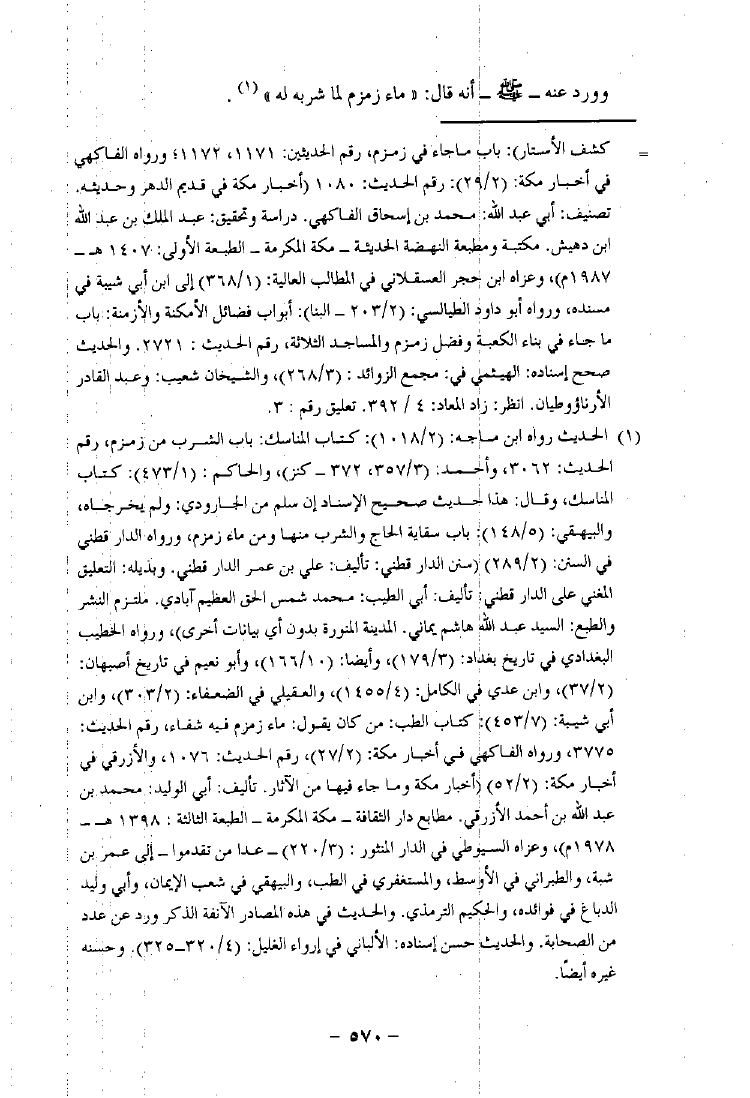 وورد عنه ـ ﷺ ـ أنه قال: « ماء زمزم لما شربه له » (١) .
= كشف الأستار): باب ماجاء في زمزم، رقم الحديثين: ١١٧١، ١١٧٢؛ ورواه الفاكهي
في أخبار مكة: (٢٩/٢): رقم الحديث: ١٠٨٠ (أخبار مكة في قديم الدهر وحديثه.
تصنيف: أبي عبد الله: محمد بن إسحاق الفاكهي. دراسة وتحقيق: عبد الملك بن عبد الله
ابن دهيش. مكتبة ومطبعة النهضة الحديثة ـ مكة المكرمة ـ الطبعة الأولى: ١٤٠٧ هـ ـ
١٩٨٧م)، وعزاه ابن حجر العسقلاني في المطالب العالية: (٣٦٨/١) إلى ابن أبي شيبة في
مسنده، ورواه أبو داود الطيالسي: (٢٠٣/٢ ـ البنا): أبواب فضائل الأمكنة والأزمنة: باب
ما جاء في بناء الكعبة وفضل زمزم والمساجد الثلاثة، رقم الحديث : ٢٧٢١. والحديث
صحح إسناده: الهيثمي في: مجمع الزوائد : (٢٦٨/٣)، والشيخان شعيب: وعبد القادر
الأرناؤوطيان. انظر: زاد المعاد: ٤ / ٣٩٢. تعليق رقم : ٣.
(١) الحديث رواه ابن ماجه: (١٠١٨/٢): كتاب المناسك: باب الشرب من زمزم، رقم
الحديث: ٣٠٦٢، وأحمد: (٣٥٧/٣، ٣٧٢ ـ كنز)، والحاكم : (٤٧٣/١): كتاب
المناسك، وقال: هذا حديث صحيح الإسناد إن سلم من الجارودي: ولم يخرجاه،
والبيهقي: (١٤٨/٥): باب سقاية الحاج والشرب منها ومن ماء زمزم، ورواه الدار قطني
في السنن: (٢٨٩/٢) (سنن الدار قطني: تأليف: علي بن عمر الدار قطني. وبذيله: التعليق
المغني على الدار قطني: تأليف: أبي الطيب: محمد شمس الحق العظيم آبادي. ملتزم النشر
والطبع: السيد عبد الله هاشم يماني. المدينة المنورة بدون أي بيانات أخرى)، ورواه الخطيب
البغدادي في تاريخ بغداد: (١٧٩/٣)، وأيضا: (١٦٦/١٠)، وأبو نعيم في تاريخ أصبهان:
(٣٧/٢)، وابن عدي في الكامل: (١٤٥٥/٤)، والعقيلي في الضعفاء: (٣٠٣/٢)، وابن
أبي شيبة: (٤٥٣/٧): كتاب الطب: من كان يقول: ماء زمزم فيه شفاء، رقم الحديث:
٣٧٧٥، ورواه الفاكهي في أخبار مكة: (٢٧/٢)، رقم الحديث: ١٠٧٦، والأزرقي في
أخبار مكة: (٥٢/٢) (أخبار مكة وما جاء فيها من الآثار. تأليف: أبي الوليد: محمد بن
عبد الله بن أحمد الأزرقي. مطابع دار الثقافة ـ مكة المكرمة ـ الطبعة الثالثة : ١٣٩٨ هـ ـ
١٩٧٨م)، وعزاه السيوطي في الدار المنثور : (٢٢٠/٣) ـ عدا من تقدموا ـ إلى عمر بن
شبة، والطبراني في الأوسط، والمستغفري في الطب، والبيهقي في شعب الإيمان، وأبي وليد
الدباغ في فوائده، والحكيم الترمذي. والحديث في هذه المصادر الآنفة الذكر ورد عن عدد
من الصحابة. والحديث حسن إسناده: الألباني في إرواء الغليل: (٣٢٠/٤ـ٣٢٥). وحسنه
غيره أيضًا.
ـ ٥٧٠ ـ